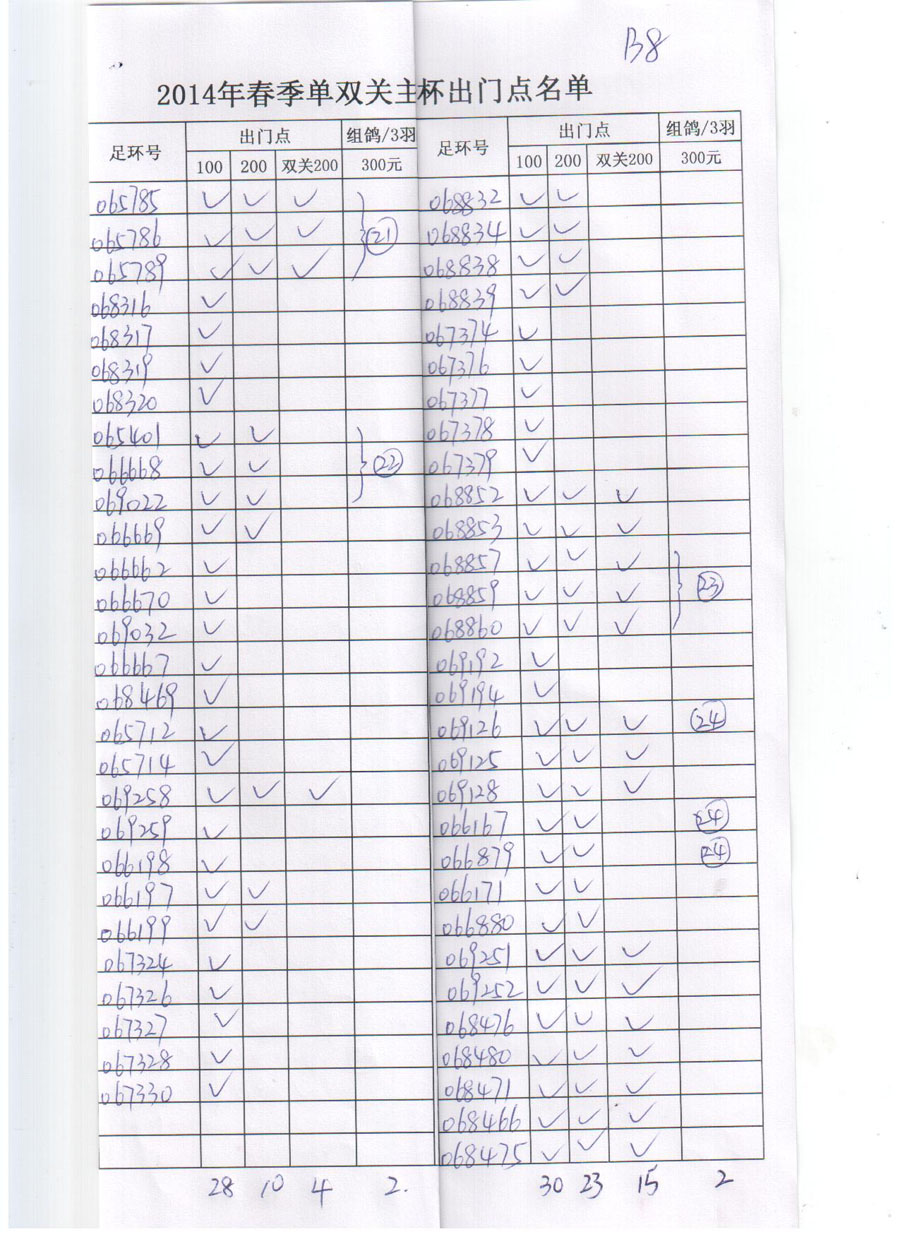 B8
2014年春季单双关主杯出门点名单
足环号 出门点 组鸽/3羽 足环号 出门点 组鸽/3羽
100 200 双关200 300元 100 200 双关200 300元
065785 ✓ ✓ ✓ 068832 ✓ ✓
065786 ✓ ✓ ✓ (21) 068834 ✓ ✓
065789 ✓ ✓ ✓ 068838 ✓ ✓
068316 ✓ 068839 ✓ ✓
068317 ✓ 067374 ✓
068319 ✓ 067376 ✓
068320 ✓ 067377 ✓
065401 ✓ ✓ 067378 ✓
066668 ✓ ✓ (22) 067379 ✓
069022 ✓ ✓ 068852 ✓ ✓ ✓
066669 ✓ ✓ 068853 ✓ ✓ ✓
066662 ✓ 068857 ✓ ✓ ✓
066670 ✓ 068859 ✓ ✓ ✓ (23)
069032 ✓ 068860 ✓ ✓ ✓
066667 ✓ 069192 ✓
068469 ✓ 069194 ✓
065712 ✓ 069126 ✓ ✓ ✓ (24)
065714 ✓ 069125 ✓ ✓ ✓
069258 ✓ ✓ ✓ 069128 ✓ ✓ ✓
069259 ✓ 066167 ✓ ✓ (24)
066198 ✓ 066879 ✓ ✓ (24)
066197 ✓ ✓ 066171 ✓ ✓
066199 ✓ ✓ 066880 ✓ ✓
067324 ✓ 069251 ✓ ✓ ✓
067326 ✓ 069252 ✓ ✓ ✓
067327 ✓ 068476 ✓ ✓ ✓
067328 ✓ 068480 ✓ ✓ ✓
067330 ✓ 068471 ✓ ✓ ✓
068466 ✓ ✓ ✓
068475 ✓ ✓ ✓
28 10 4 2. 30 23 15 2